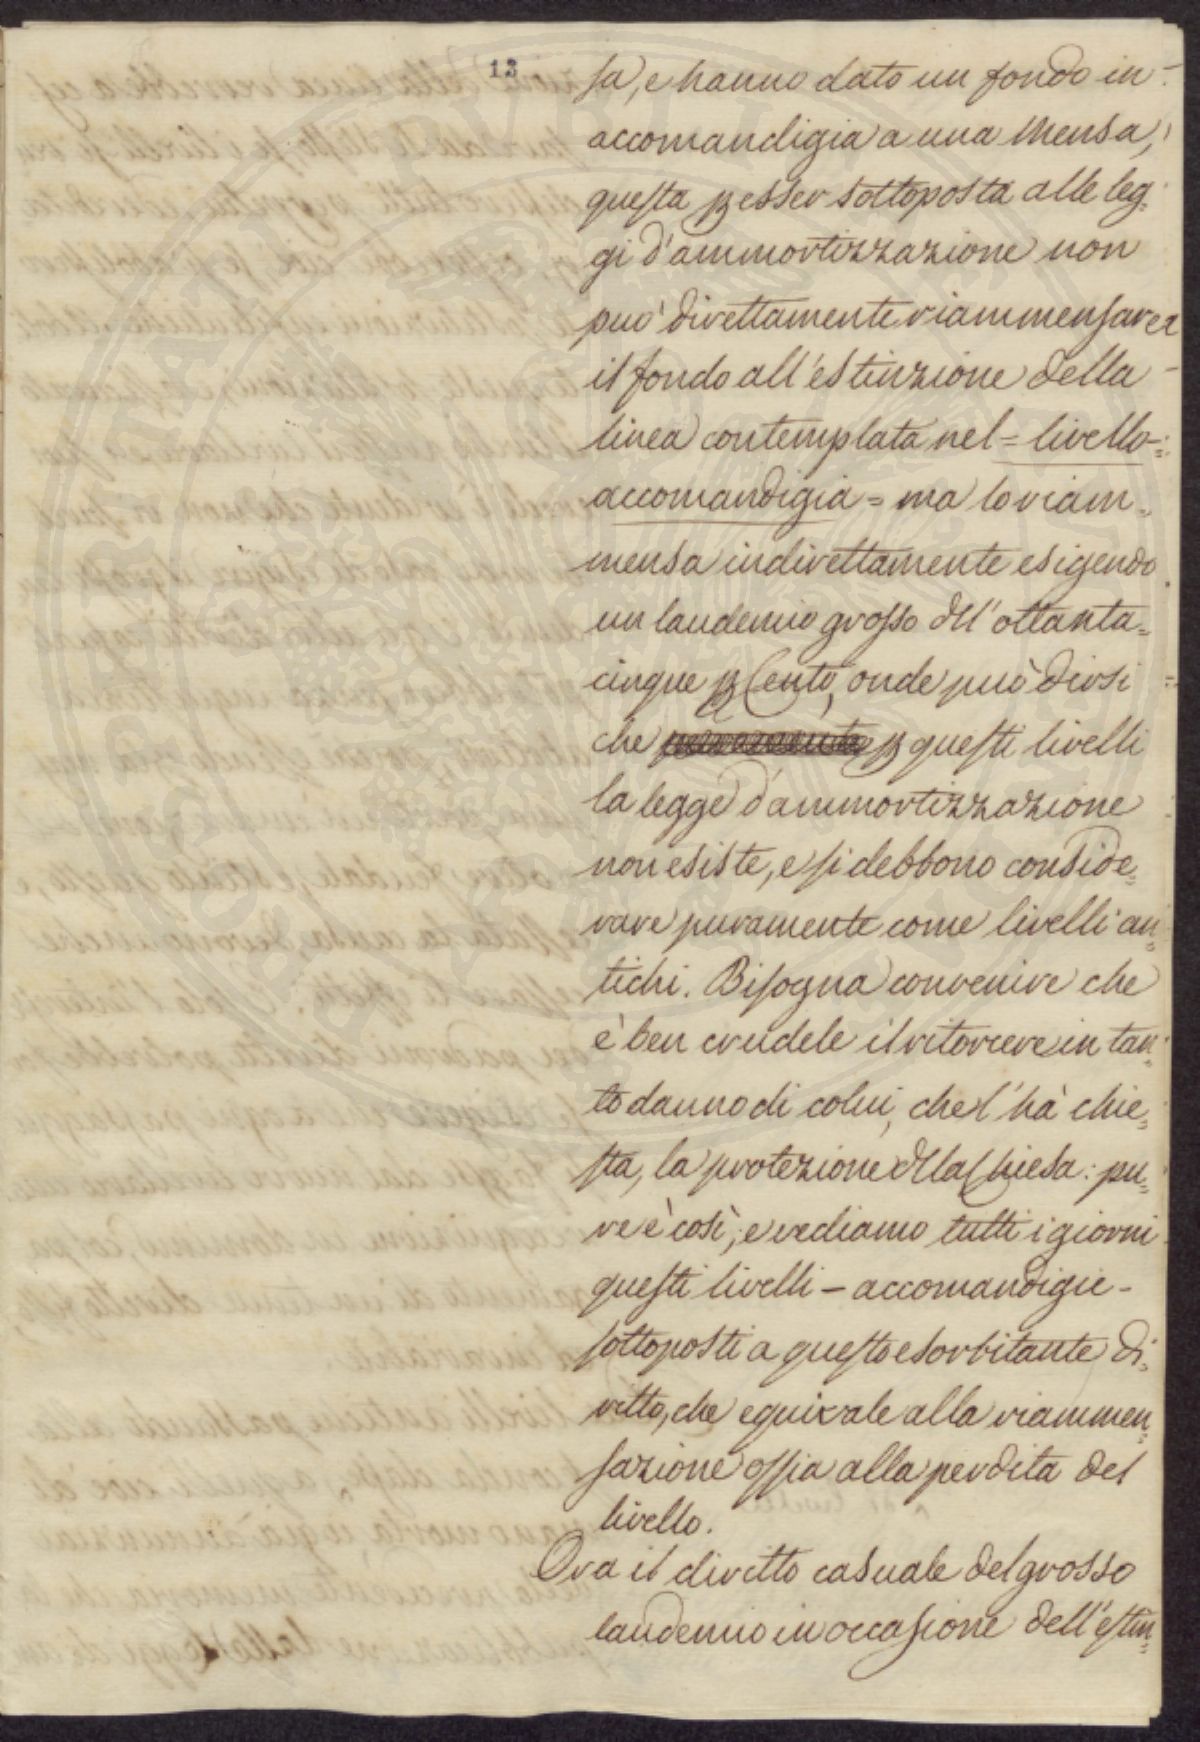 13
sa, e hanno dato un fondo in
accomandigia a una Mensa,
questa p esser sottoposta alle leg=
gi d'ammortizzazione non
può direttamente riammensare
il fondo all'estinzione della
linea contemplata nel = livello=
accomandigia = ma lo riam=
mensa indirettamente esigendo
un laudemio grosso dell'ottanta=
cinque p Cento, onde può dirsi
che p questi livelli
la legge d'ammortizzazione
non esiste, e si debbono conside=
rare puramente come livelli an=
tichi. Bisogna convenire che
è ben crudele il ritorcere in tan=
to danno di colui, che l'hà chie=
sta, la protezione della Chiesa: pu=
re è così, e vediamo tutti i giorni
questi livelli - accomandigie -
sottoposti a questo esorbitante di=
ritto, che equivale alla riammen=
sazione ossia alla perdita del
livello.
Ora il diritto casuale del grosso
laudemio in occasione dell'estin=